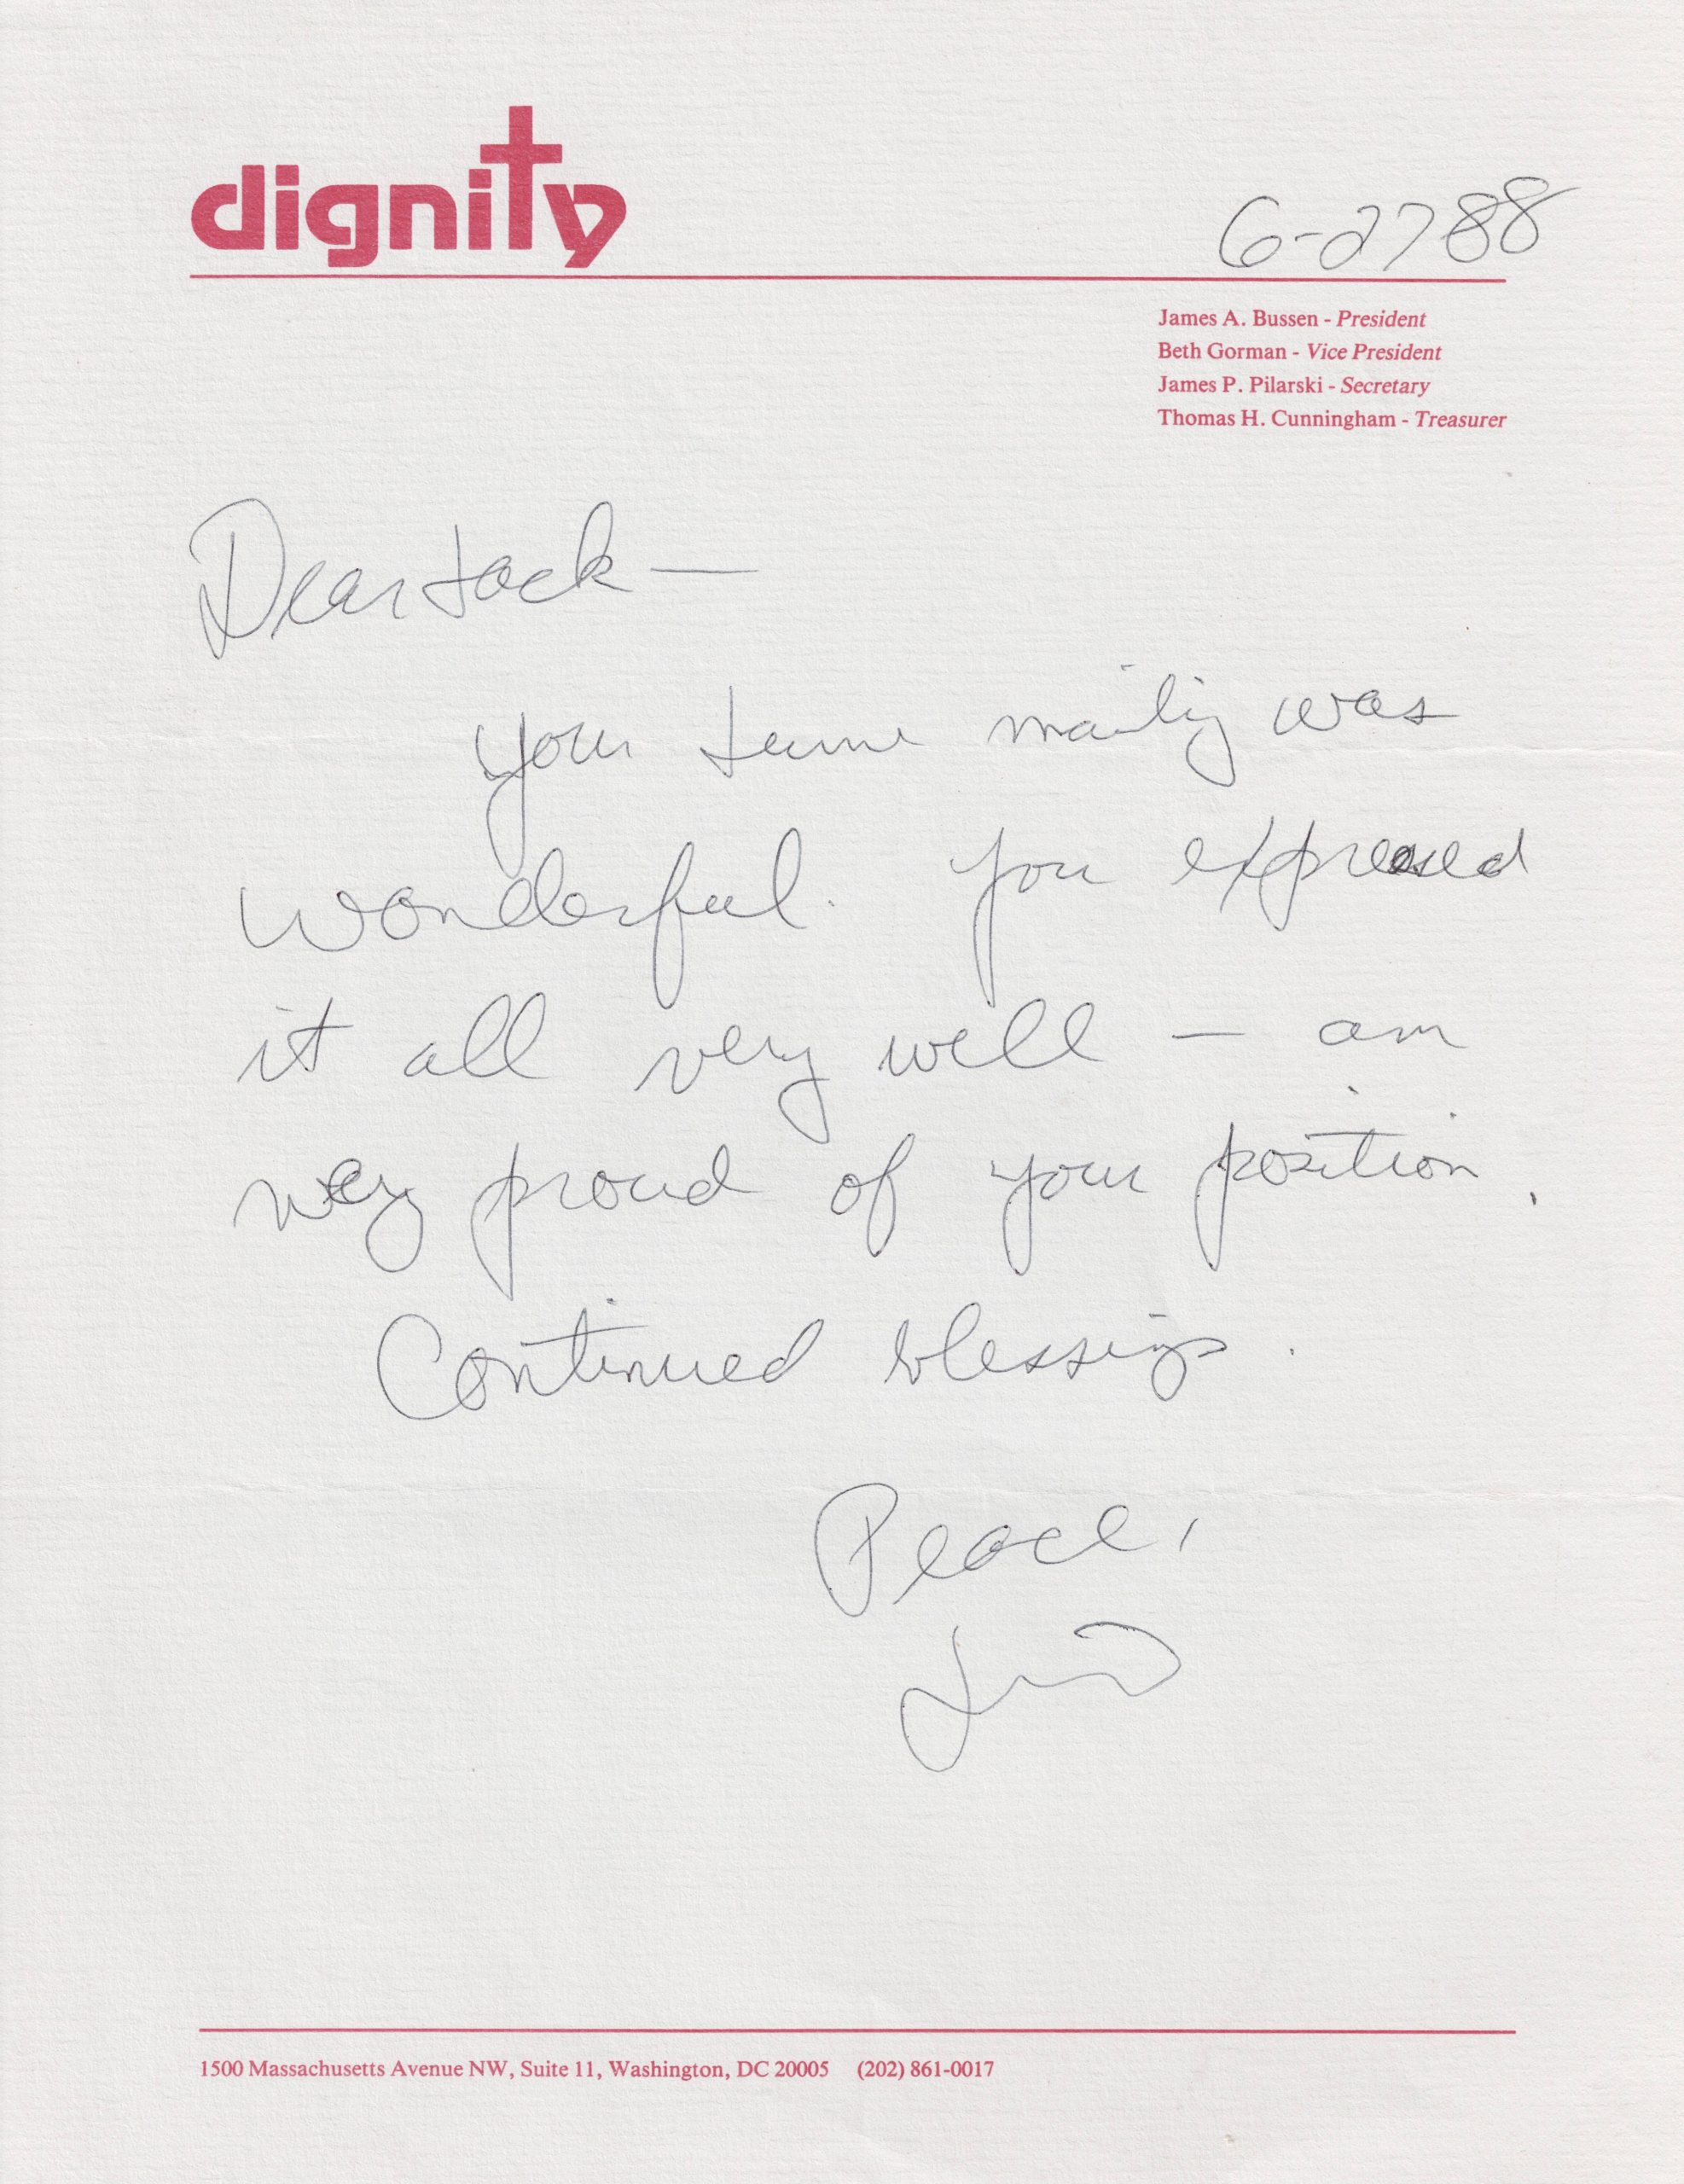 dignity
6-2788
James A. Bussen - President
Beth Gorman - Vice President
James P. Pilarski - Secretary
Thomas H. Cunningham - Treasurer
Dear Jack —
your June mailing was
wonderful. you expressed
it all very well — am
very proud of your position.
Continued blessings.
Peace,
Jim
1500 Massachusetts Avenue NW, Suite 11, Washington, DC 20005 (202) 861-0017